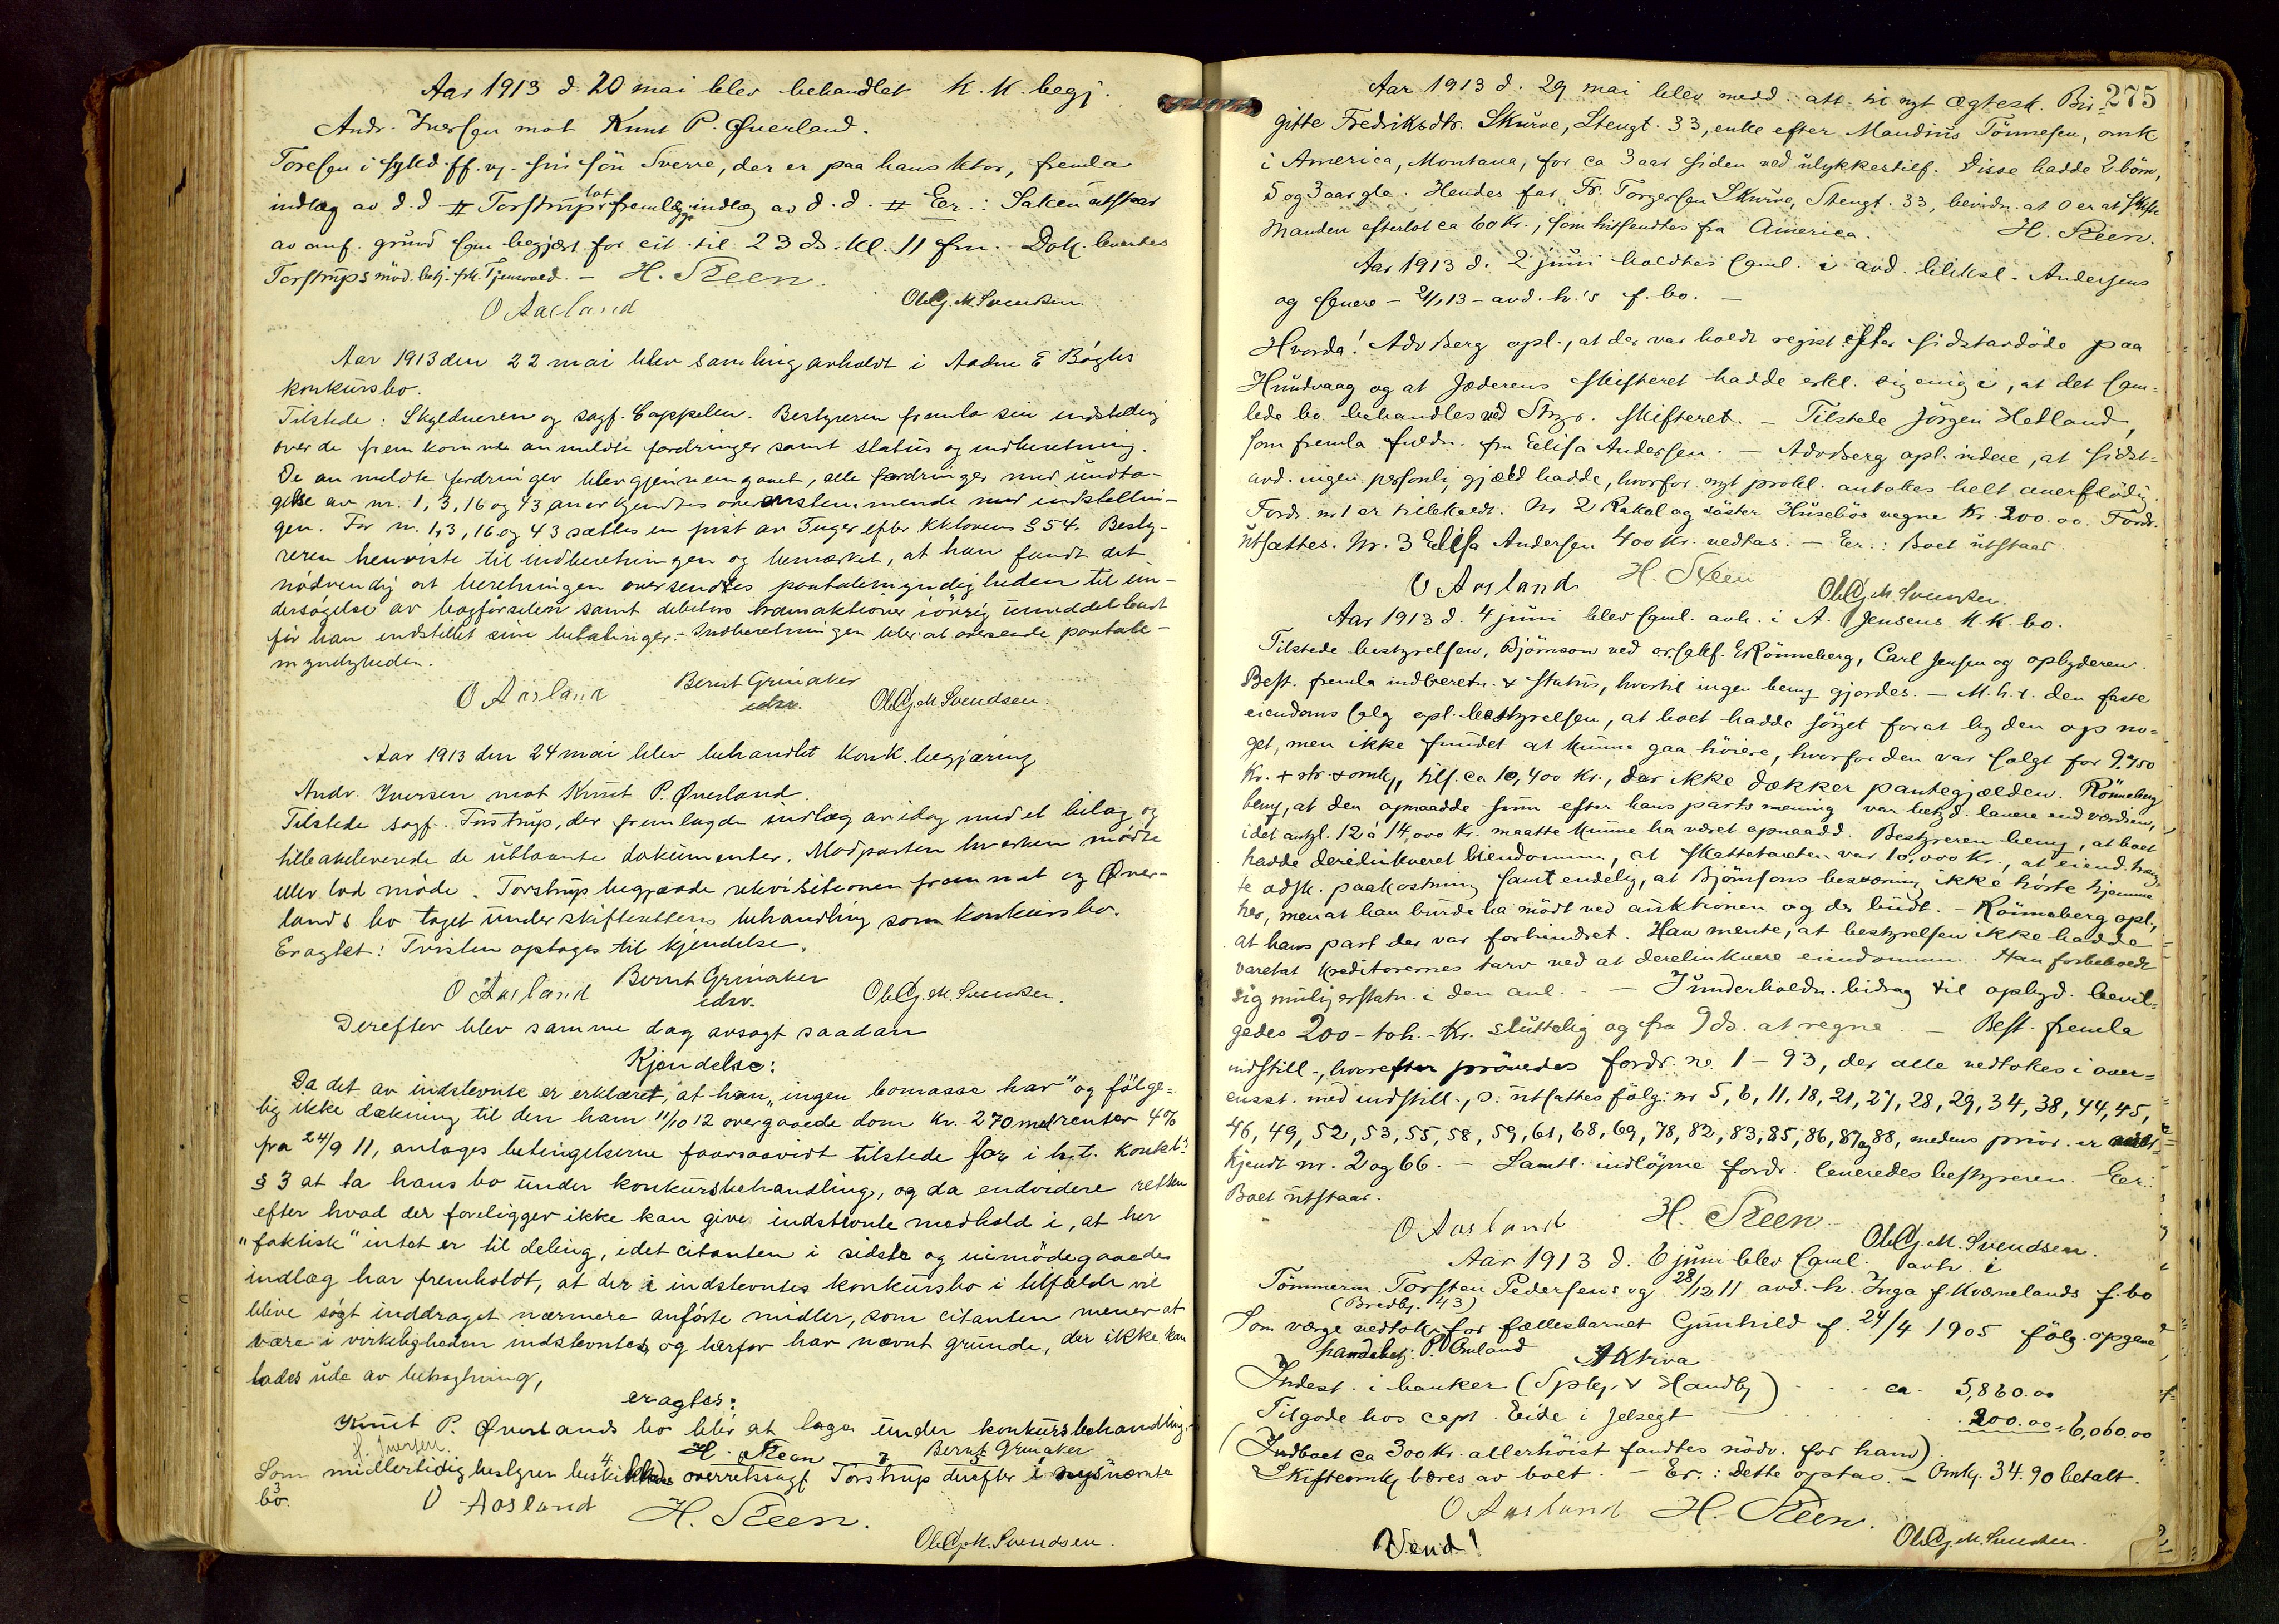 Aar 1913 d. 20 mai blev behandlet K.K. begj.
Andr. Iversen mot Knut P. Øverland.
Toresen i sykd.ff. v. sin sön Sverre, der er paa hans ktor, fremla
indlæg av d.d # Torstrup lot fremlægge indlæg av d.d. # Er.: Saken utstaar
av anf. grund som begjært for cit. til 23 ds. kl. 11 fm. Dok. levertes
Torstrups mød. betj. frk. Tjensvold. - H. Steen.
O Aasland
Ole G. M. Svendsen.
Aar 1913 den 22 mai blev samling avholdt i Aadne E Bøgles
konkursbo.
Tilstede: Skyldneren og sagf. Cappelen. Bestyreren fremla sin indstilling
over de fremkomne anmeldte fordringer samt status og indberetning.
De anmeldte fordringer blev gjennemgaaet, alle fordringer med undta-
gelse av nr. 1, 3, 16 og 43 anerkjendtes overenstemmende med indstillin-
gen. For nr. 1, 3, 16 og 43 sættes en frist av 3 uger efter kklovens § 54. Besty-
reren henviste til indberetningen og bemerket, at han fandt det
nødvendig at beretningen oversendtes paatalemyndigheden til un-
dersøgelse av bogførselen samt debitors transaktioner iøvrig umiddelbart
før han indstillet sine betalinger. - Indberetningen blir at oversende paatale-
myndigheden.
O Aasland
Bernt Grinaker
edsv.
Ole G. M. Svendsen.
Aar 1913 den 24 mai blev behandlet konk. begjæring
Andr. Iversen mot Knut P. Øverland.
Tilstede sagf. Torstrup, der fremlagde indlæg av idag med et bilag og
tilbakeleverede de utlaante dokumenter. Modparten hverken mødte
eller lod møde. Torstrup begjærede rekvisitionen fremmet og Øver-
lands bo taget under skifterettens behandling som konkursbo.
Eragtet: Tvisten optages til kjendelse.
O Aasland
Bernt Grinaker
edsv.
Ole G. M. Svendsen.
Derefter blev samme dag avsagt saadan
Kjendelse:
Da det av indstevnte er erklæret, at han „ingen bomasse har" og følge-
lig ikke dækning til den ham 11/10 12 overgaaede dom kr. 270 med renter 4%
fra 24/9 11, antages betingelserne foorsaavidt tilstede for i h.t. konkl's
§ 3 at ta hans bo under konkursbehandling, og da endvidere retten
efter hvad der foreligger ikke kan give indstevnte medhold i, at her
"faktisk" intet er til deling, idet citanten i sidste og uimødegaaede
indlæg har fremholdt, at der i indstevntes konkursbo i tilfælde vil
blive søgt inddraget nærmere anførte midler, som citanten mener at
være i virkeligheden indstevntes, og herfor har nævnt grunde, der ikke kan
lades ude av betragtning,
eragtes:
Knut P. Øverlands bo blir at tage under konkursbehandling.
H. Steen
Bernt Grinaker
Som midlertidig bestyrer beskikkedes overretssagf Torstrup derefter i nysnævnte
bo.
O Aasland
H. Steen.
Ole G. M. Svendsen.
275
Aar 1913 d. 29 mai blev medd. att. til nyt ægtesk. Bir-
gitte Fredriksdtr. Skurve, Stengt. 33, enke efter Maudius Tönnesen, omk
i America, Montana, for ca 3 aar siden ved ulykkestilf. Disse hadde 2 börn,
5 og 3 aar gle. Hendes far, Fr. Torgersen Skurve, Stengt. 33, bevidn. at 0 er at skifte
Manden efterlot ca 60 Kr., som hitsendtes fra America. H. Steen.
Aar 1913 d. 2 juni holdtes saml. i avd. bliksl. Andersens
og senere - 2/1 13 - avd. h.'s f. bo. -
Hvorda! Adv Berg opl., at der var holdt regist. efter sidstavdöde paa
Hundvaag og at Jæderens skifteret hadde erkl. sig enig i, at det sam-
lede bo behandles ved Stvgr. skifteret. - Tilstede Jörgen Hetland,
som fremla fuldm. fra Elisa Andersen. - Adv Berg opl. videre, at sidst-
avd. ingen personlig gjæld hadde, hvorfor nyt prokl. antokes helt overflödig.
Fordr. nr 1 er tilbkaldt. Nr 2 Rakel og söster Husebös vegne Kr. 200.00. Fordr.
utsattes. Nr. 3 Elisa Andersen 400 Kr. vedtas. - Er.: Boet utstaar.
O Aasland
H. Steen
Ole G. M. Svendsen.
Aar 1913 d. 4 juni blev saml. avh. i A. Jensens K.K. bo.
Tilstede bestyrelsen, Björnson ved o.r.sakf. E Rönneberg, Carl Jensen og opbyderen.
Best. fremla indberetn. & status, hvortil ingen bem. gjordes. - M.h.t. den faste
eiendoms salg opl. bestyrelsen, at boet hadde sörget for at by den op no-
get, men ikke fundet at kunne gaa höiere, hvorfor den var solgt for 9,750
Kr. + str. + omk., tils. ca 10,400 Kr., der ikke dækker pantegjælden. Rönneberg
bem., at den opnaadde sum efter hans parts mening var betyd. lavere end værdien,
idet antgl. 12 à 14,000 kr. maatte kunne ha været opnaadd. Bestyreren bem., at boet
hadde derelinkveret eiendommen, at skattetaksten var 10,000 Kr., at eiend. træng-
te adsk. paakostning samt endelig, at Björnsons besværing ikke hörte hjemme
her, men at han burde ha mödt ved auktionen og der budt. - Rönneberg opl.,
at hans part der var forhindret. Han mente, at bestyrelsen ikke hadde
varetat kreditorernes tarv ved at derelinkvere eiendommen. Han forbeholdt
sig mulig erstatn. i den anl. - I underholdn.bidrag til opbyd. bevil-
gedes 200 - toh. - Kr. sluttelig og fra 9 ds. at regne. - Best. fremla
indstill., hvorefter prövedes fordr. nr. 1 - 93, der alle vedtokes i over-
ensst. med indstill., ɔ: utsattes fölg. nr 5, 6, 11, 18, 21, 27, 28, 29, 34, 38, 44, 45,
46, 49, 52, 53, 55, 58, 59, 61, 68, 69, 78, 82, 83, 85, 86, 87 og 88, medens prior. er
kjendt nr. 2 og 66. - Samtl. indlöpne fordr. leveredes bestyreren. Er.:
Boet utstaar.
O Aasland
H. Steen
Ole G. M. Svendsen.
Aar 1913 d. 6 juni blev saml. avh. i
Tömmerm. Torsten Pedersens og 28/12 11 avd. h. Inga f. Kværnelands f.bo
(Bredbg. 43)
Som værge vedtok for fællesbarnet Gunhild f. 24/4 1905 fölg. opgave
handelsbetj. P. Omland
Aktiva
Indest. i banker (Spbg. & Handbg) . . . ca. 5,860.00
Tilgode hos capt. Eide i Jelsegt . . . 200.00 = 6,060.00
(Indboet ca 300 Kr. allerhöist fandtes nödv. for ham).
Skifteomk. bæres av boet. - Er.: Dette optas. - Omk. 34.90 betalt.
O Aasland
H. Steen.
Ole G. M. Svendsen.
Vend!